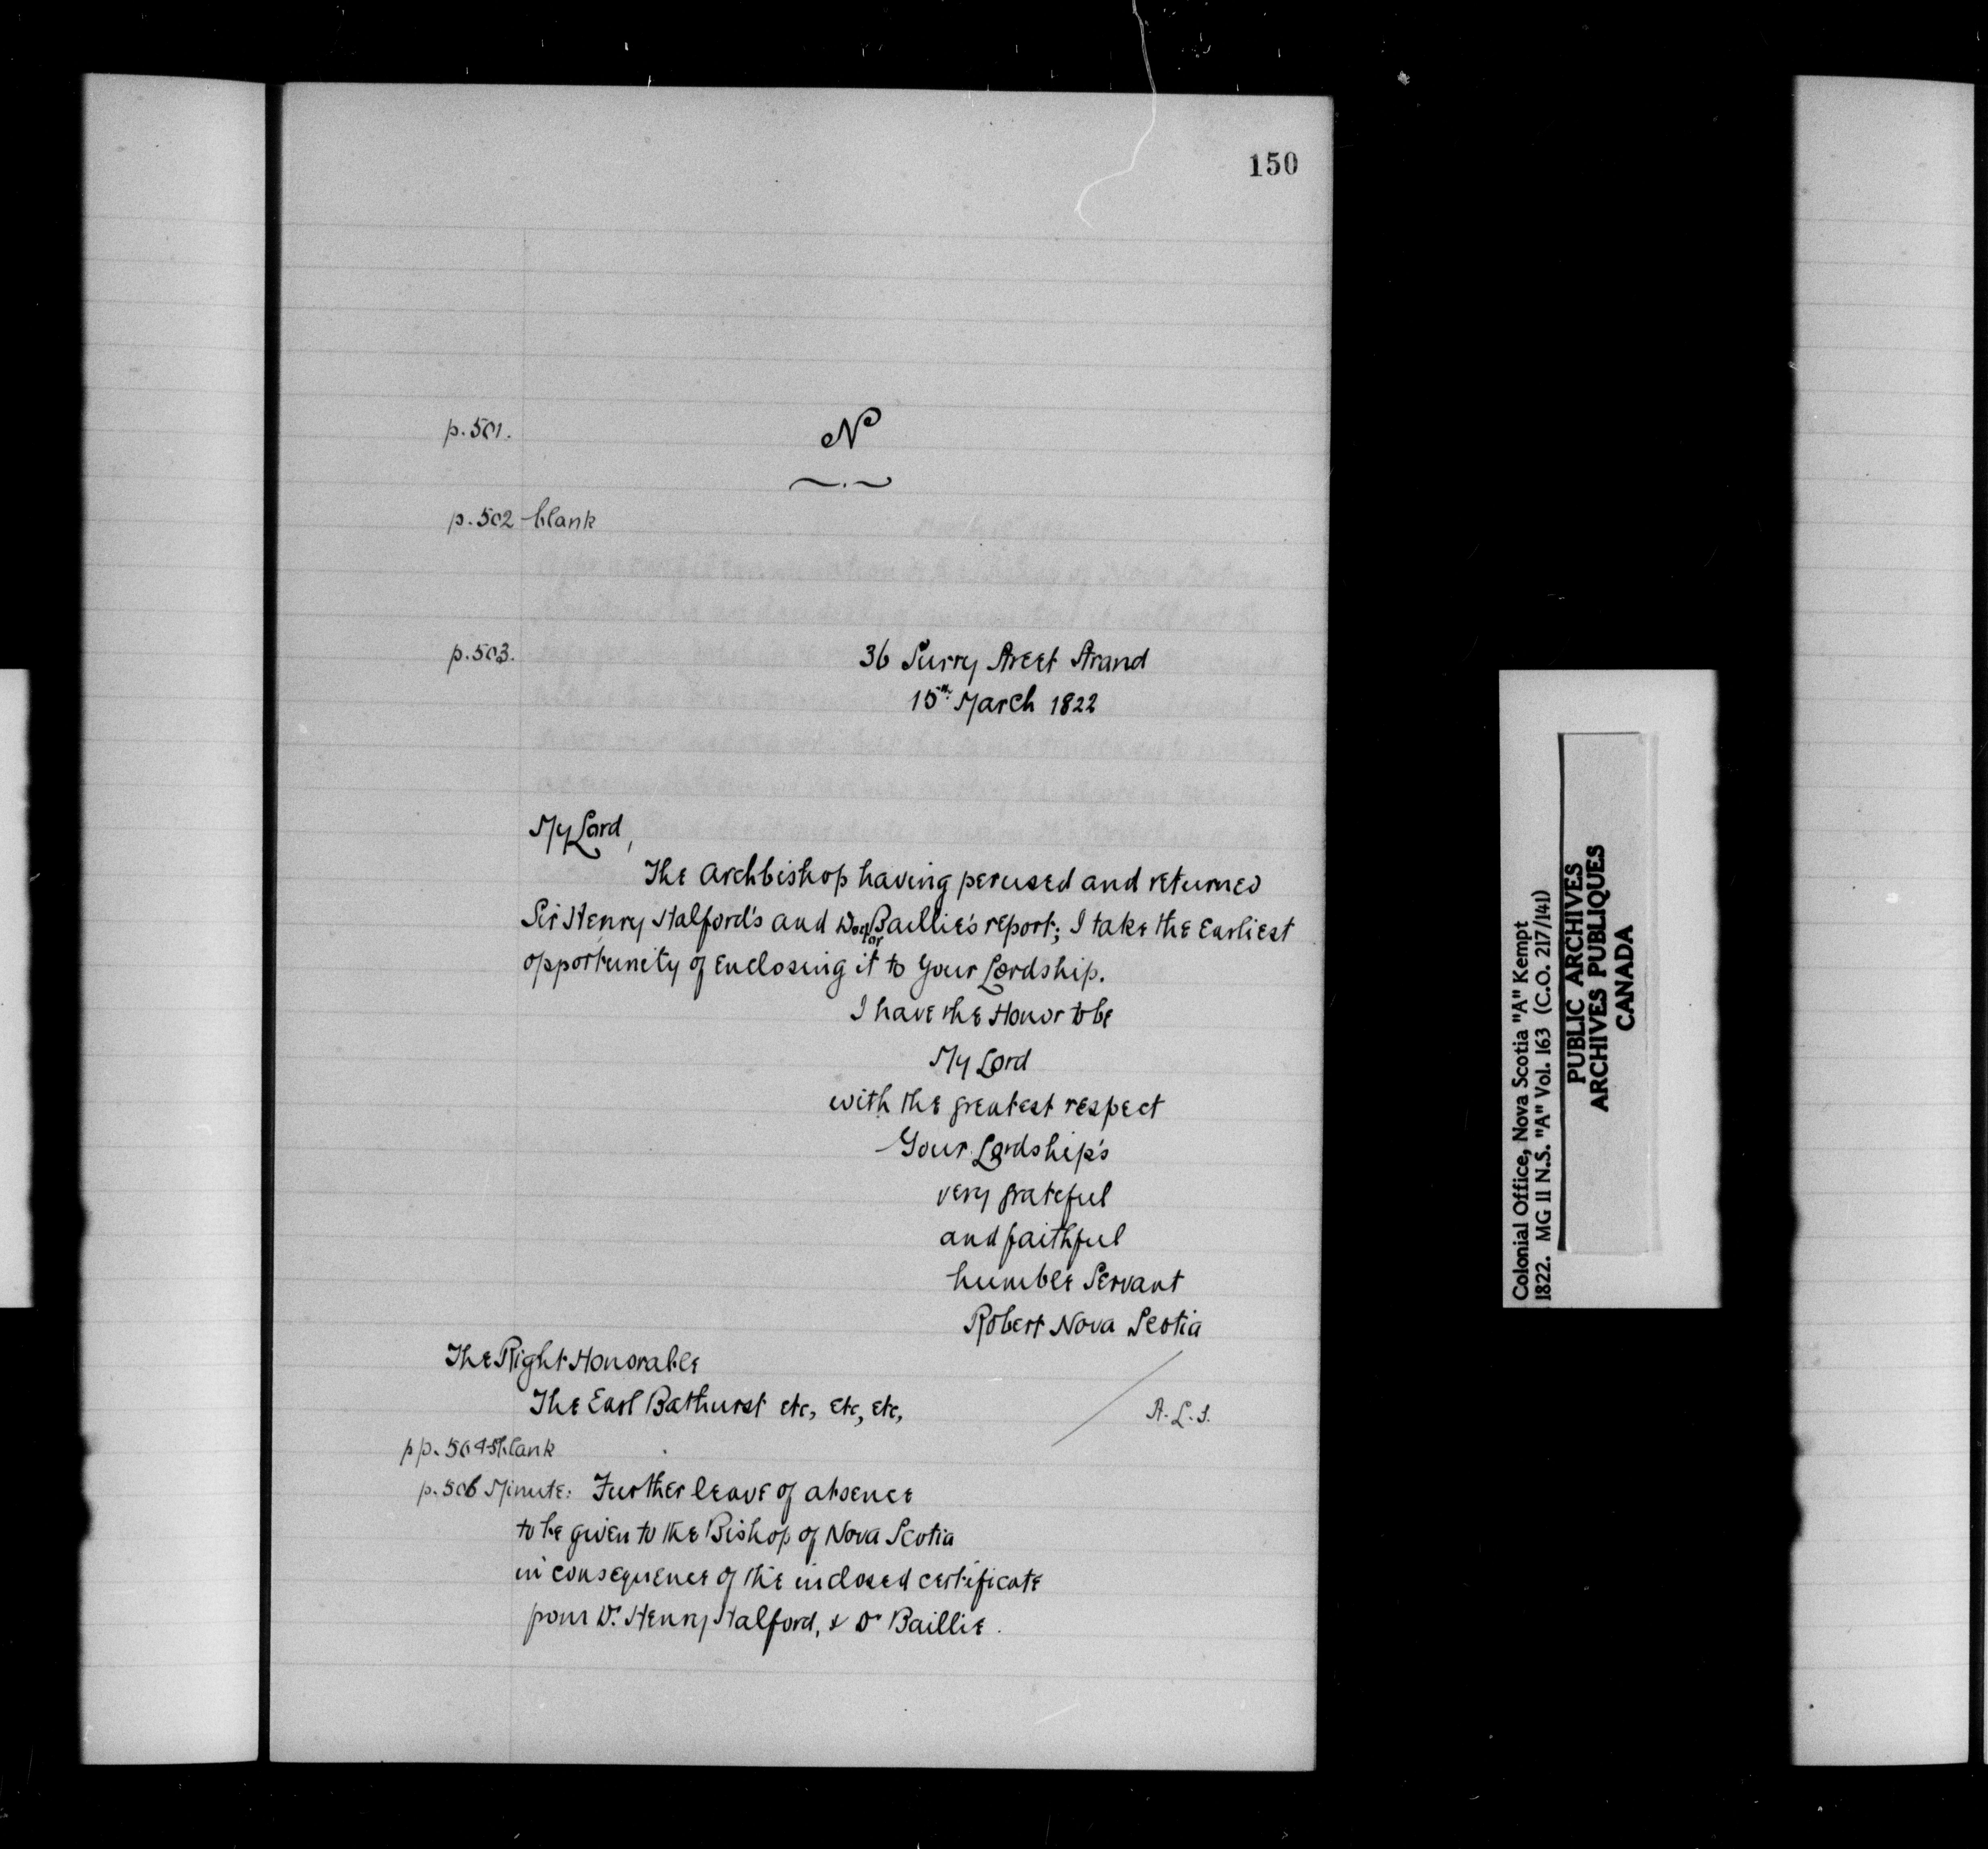 150
p. 501.
N
p. 502 blank
p. 503.
36 Surry Street Strand
15th March 1822
My Lord,
The Archbishop having perused and returned
Sir Henry Halford's and Doctor Baillie's report; I take the Earliest
opportunity of Enclosing it to Your Lordship.
I have the Honor to be
My Lord
with the greatest respect
Your Lordship's
very grateful
and faithful
humble Servant
Robert Nova Scotia
The Right Honorable
The Earl Bathurst etc, etc, etc,
A. L. S.
pp. 504-5 blank
p. 506 Minute: Further leave of absence
to be given to the Bishop of Nova Scotia
in consequence of the inclosed certificate
pour Dr. Henry Halford, & Dr Baillie.
Colonial Office, Nova Scotia "A" Kempt
1822. MG 11 N.S. "A" Vol. 163 (C.O. 217/141)
PUBLIC ARCHIVES
ARCHIVES PUBLIQUES
CANADA